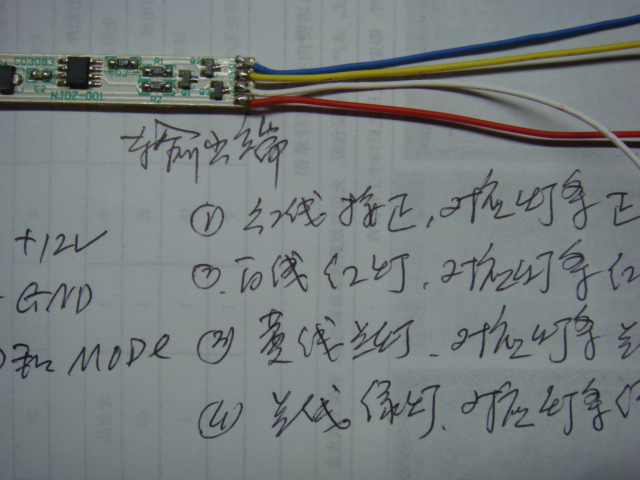 NJ02-001
R1
输出端
① 红线接正,对应灯条正
+12V
② 白线红灯,对应灯条红
GND
③ 黄线兰灯,对应灯条兰
MODE
④ 兰线绿灯,对应灯条绿